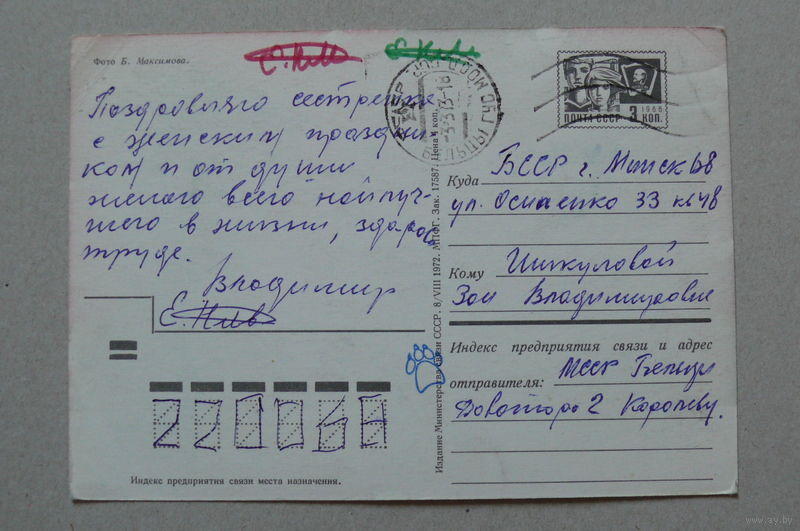 Фото Б. Максимова.
Поздравляю сестрёнке
с женским праздни
ком и от души
желаю всего наилуч-
шего в жизни, здоров
труде.
Владимир
БЕЛЬЦЫ
-3373-18
ПОЧТА СССР
1966
3 КОП.
Куда БССР г. Минск 68
ул. Осипенко 33 кв 48
Кому
Зои Владимировне
Индекс предприятия связи и адрес
отправителя: МССР Бельцы
2 Королеву.
Издание Министерства связи СССР. 8/VIII 1972. МПФГ. Зак. 17587. Цена 4 коп.
220068
Индекс предприятия связи места назначения.
www.ay.by